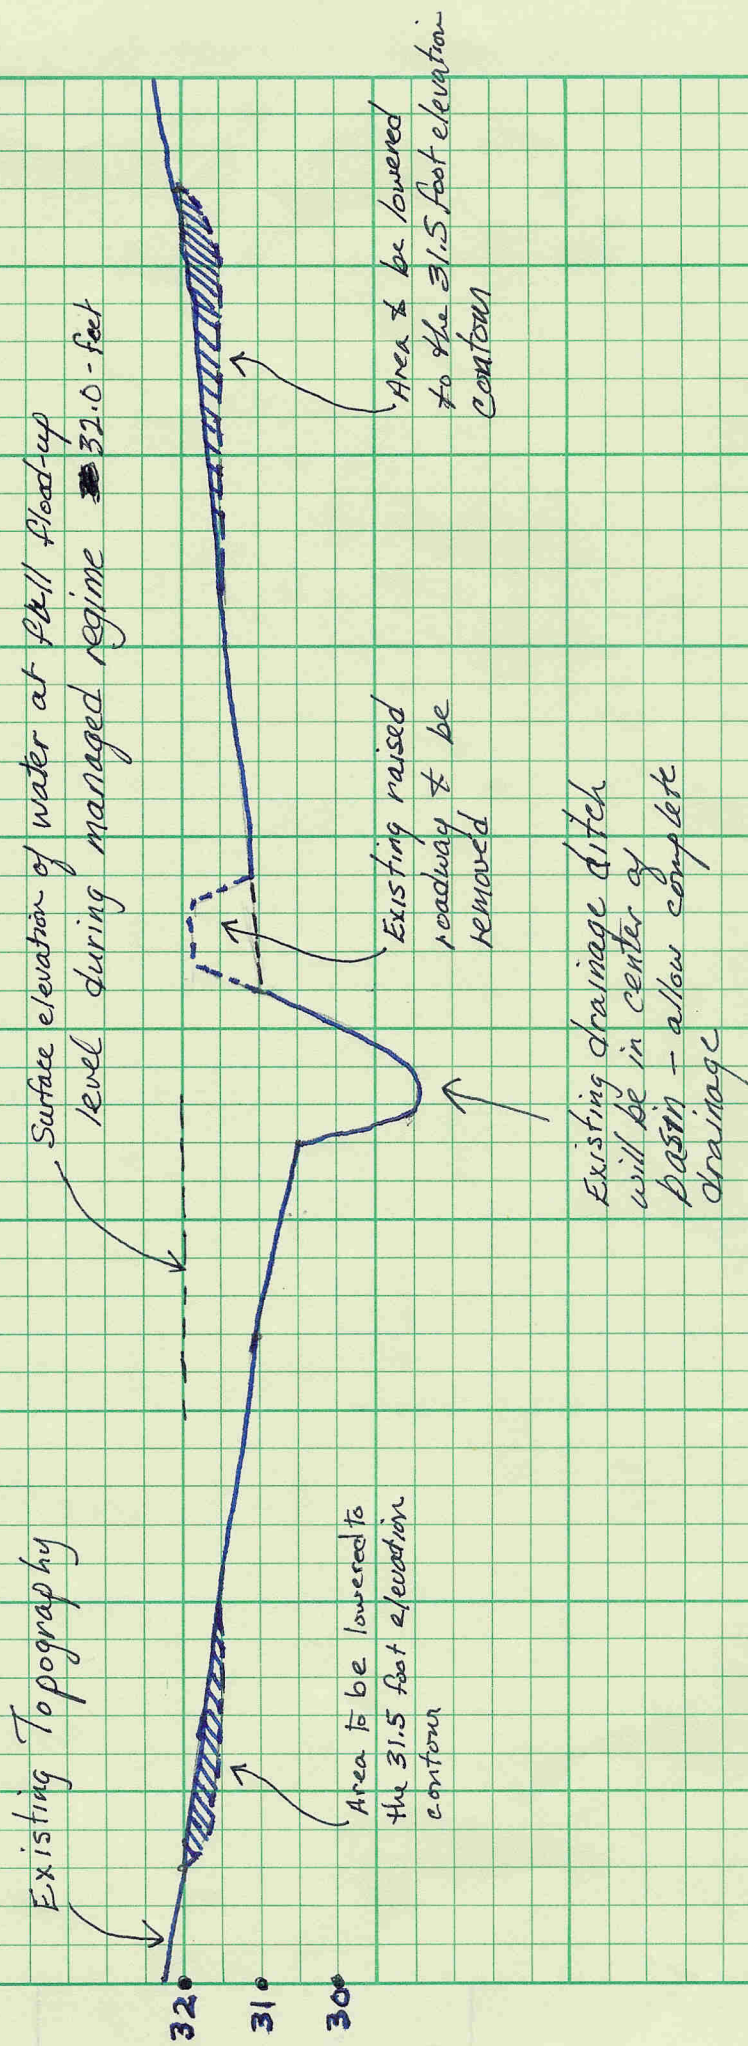 Existing Topography
Surface elevation of water at full flood-up
level during managed regime 32.0-feet
320
310
300
Area to be lowered to
the 31.5 foot elevation
contour
Existing raised
roadway to be
removed
Area to be lowered
to the 31.5 foot elevation
contour
Existing drainage ditch
will be in center of
basin - allow complete
drainage